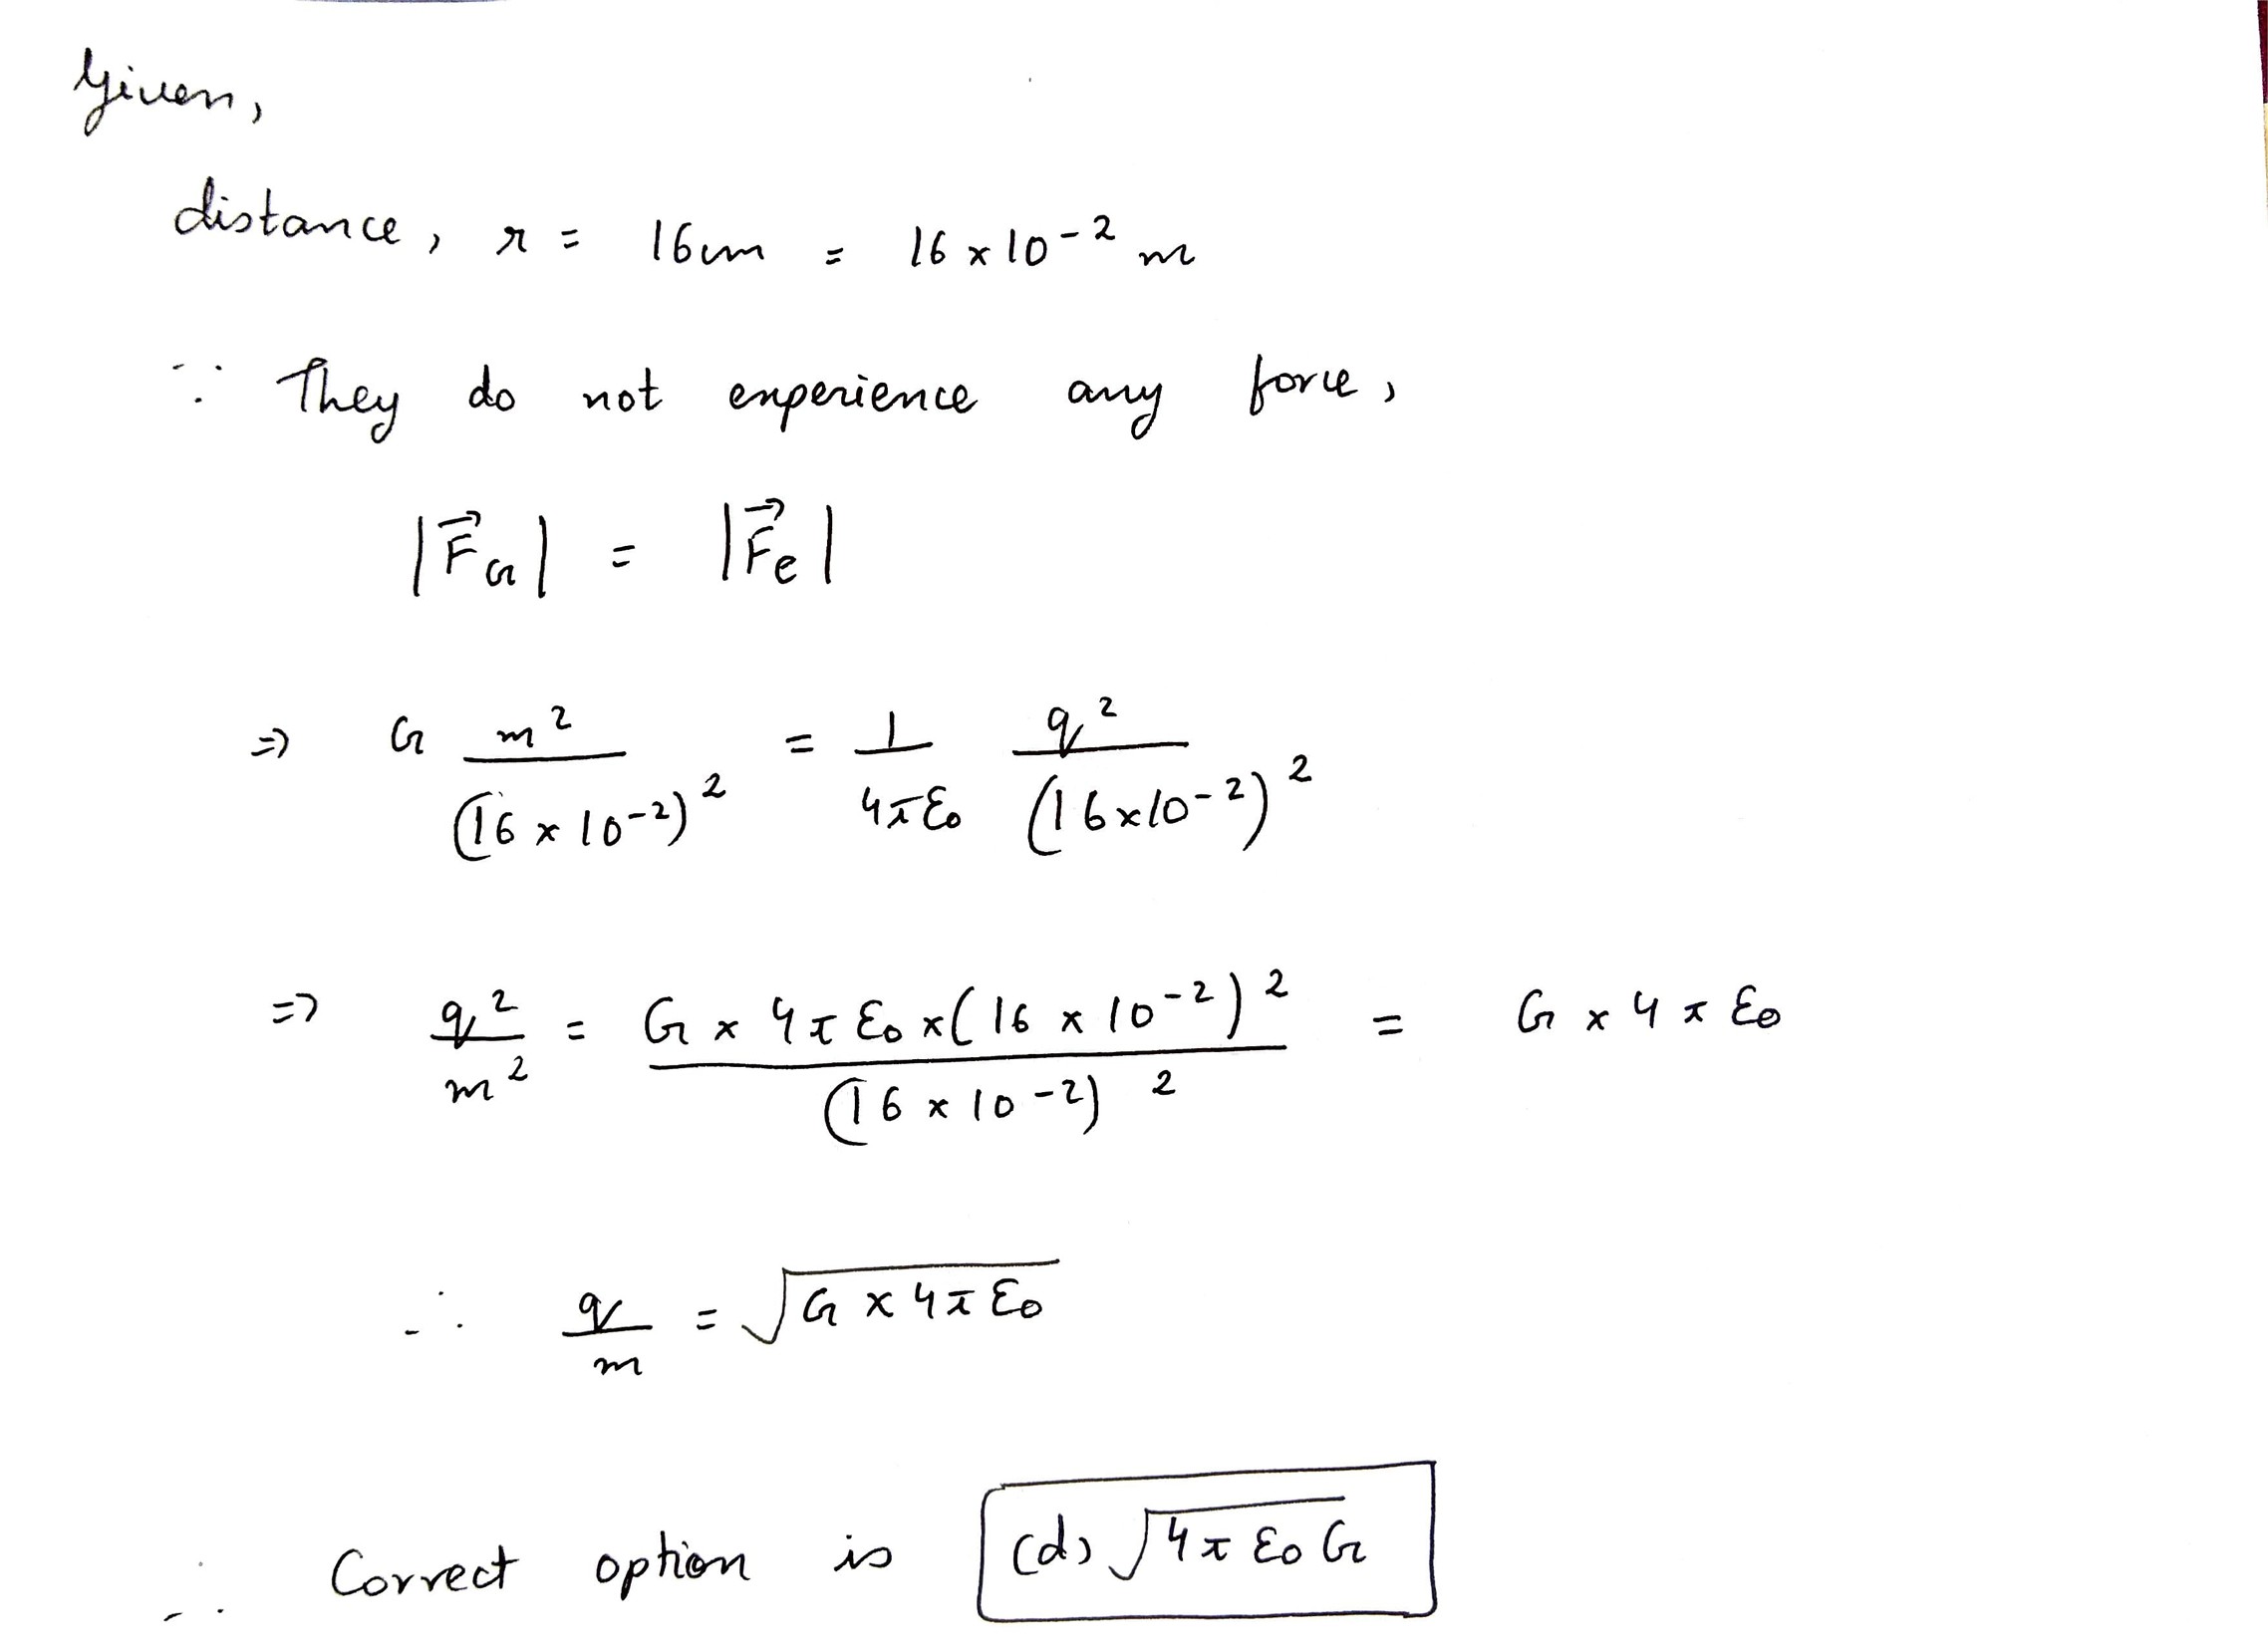 Given,
distance, r = 16cm = 16 × 10⁻² m
∵ They do not experience any force,
|F⃗_G| = |F⃗_e|
⇒ G m²/(16 × 10⁻²)² = 1/4πε₀ q²/(16×10⁻²)²
⇒ q²/m² = G × 4πε₀ × (16 × 10⁻²)²/(16 × 10⁻²)² = G × 4πε₀
∴ q/m = √(G × 4πε₀)
∴ Correct option is (d) √(4πε₀G)